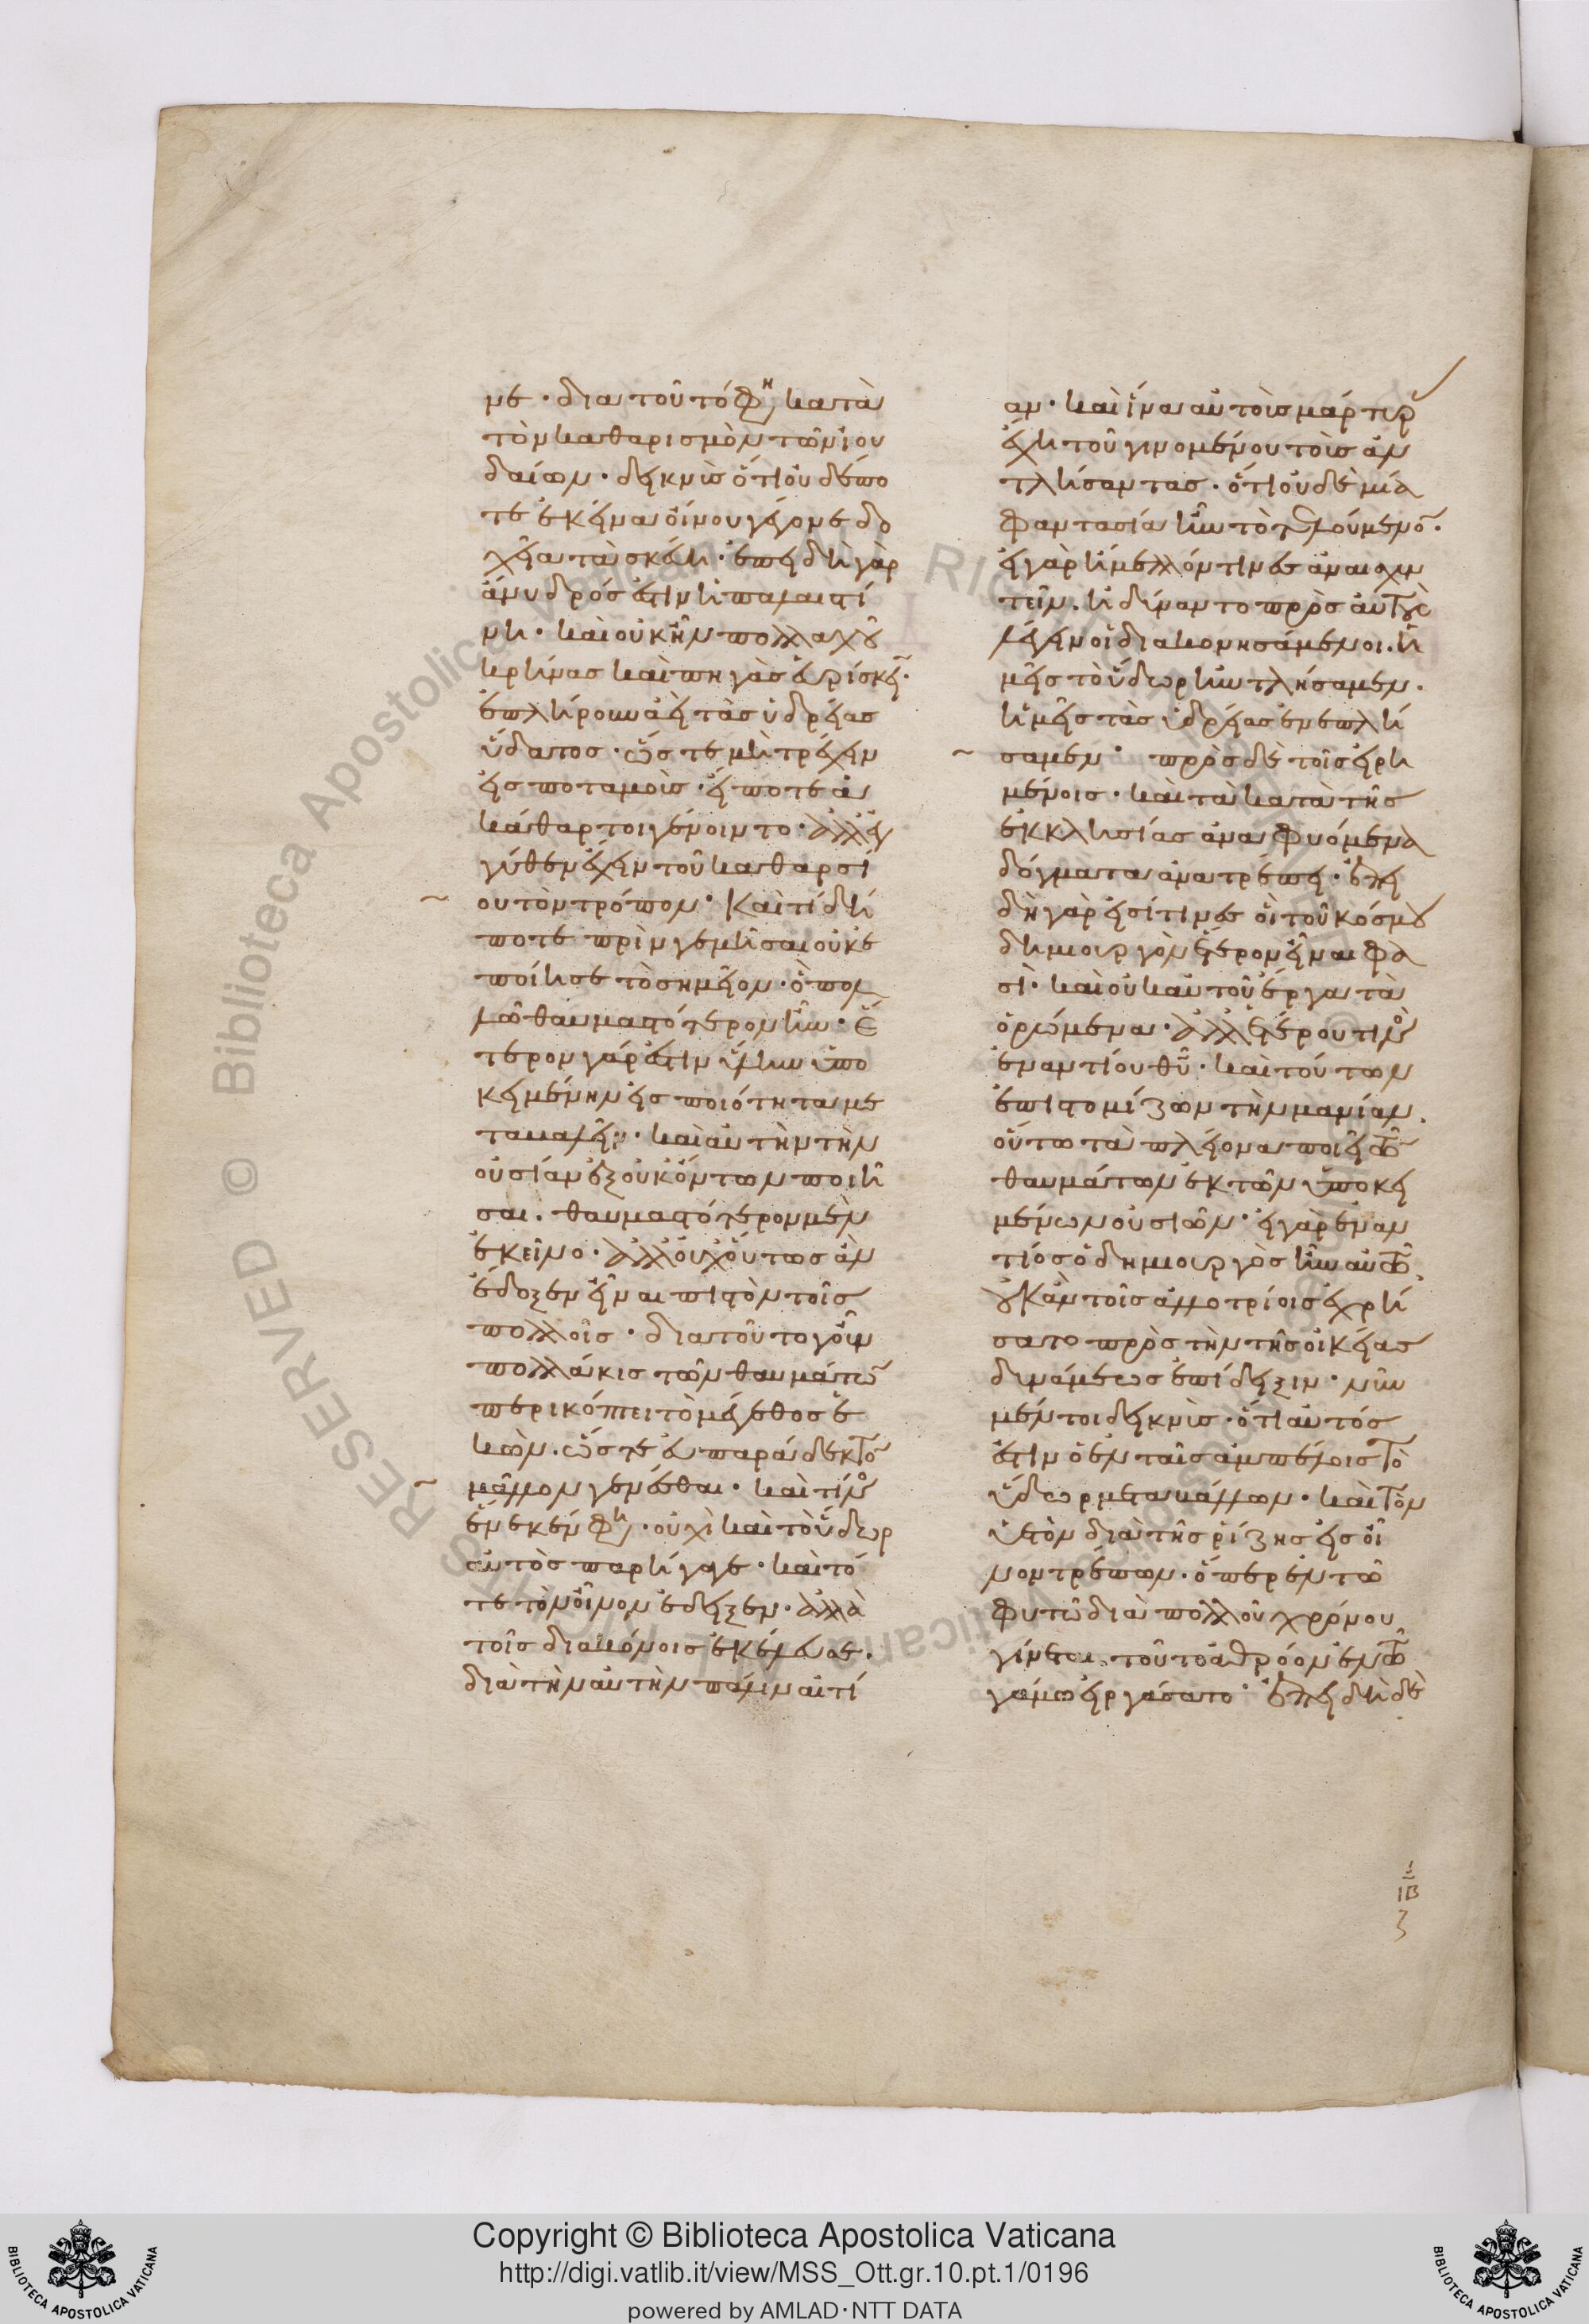 με · δια τοῦτό φη(σιν) κατὰ
τὸν καθαρισμὸν τῶν ἰου
δαίων · δεικνὺς ὅτι οὐδέπο
τε ἐκεῖνα οἴνου γέγονε δο
χεῖα τὰ σκεύη · ἐπειδὴ γὰρ
ἄνυδρός ἐστιν ἡ παλαιστί
νη · καὶ οὐκ ἦν πολλαχοῦ
κρήνας καὶ πηγὰς εὑρίσκειν ·
ἐπλήρουν ἀεὶ τὰς ὑδρείας
ὕδατος · ὥστε μὴ τρέχειν
εἰς ποταμοὺς · εἴποτε ἀ
κάθαρτοι γένοιντο · ἀλλ' ἐγ
γύθεν ἔχειν τοῦ καθαρσί
ου τὸν τρόπον · Καὶ τί δή
ποτε πρὶν γεμίσαι οὐκ ἐ
ποίησε τὸ σημεῖον · ὃ πολ
λῶ θαυμαστότερον ἦν · ἕ
τερον γάρ ἐστιν ὕλην ὑπο
κειμένην εἰς ποιότητα με
ταβαλεῖν · καὶ αὐτὴν τὴν
οὐσίαν ἐξ οὐκ ὄντων ποιῆ
σαι · θαυμαστότερον μὲν
ἐκεῖνο · ἀλλ' οὐχ οὕτως ἂν
ἔδοξεν εἶναι πιστὸν τοῖς
πολλοῖς · διατοῦτο γοῦν
πολλάκις τῶν θαυμάτων
περικόπτει τὸ μέγεθος ἑ
κὼν · ὥστε εὐπαράδεκτον
μᾶλλον γενέσθαι · καὶ τίνος
ἕνεκέν φη(σιν) · οὐχὶ καὶ τὸ ὕδωρ
αὐτὸς παρήγαγε · καὶ τό
τε τὸν οἶνον ἔδειξεν · ἀλλὰ
τοῖς διακόνοις ἐκέλευσε ·
διὰ τὴν αὐτὴν πάλιν αἰτί
αν · καὶ ἵνα αὐτοὺς μάρτυρας
ἔχη τοῦ γινομένου τοὺς ἀν
τλήσαντας · ὅτι οὐδὲ μία
φαντασία ἦν τὸ τελούμενον ·
εἰ γὰρ ἤμελλόν τινες ἀναισχυν
τεῖν · ἠδύναντο πρὸς αὐτοὺς
λέγειν οἱ διακονησάμενοι · ἡ
μεῖς τὸ ὕδωρ ἠντλήσαμεν ·
ἡμεῖς τὰς ὑδρείας ἐνεπλή
σαμεν · πρὸς δὲ τοῖς εἰρη
μένοις · καὶ τὰ κατὰ τῆς
ἐκκλησίας ἀναφυόμενα
δόγματα ἀνατρέπει · ἐπει
δὴ γὰρ εἰσί τινες οἳ τοῦ κόσμου
δημιουργὸν ἕτερον εἶναι φα
σὶ · καὶ οὐκ αὐτοῦ ἔργα τὰ
ὁρώμενα · ἀλλ' ἑτέρου τινὸς
ἐναντίου θυ · καὶ τούτων
ἐπιστομίζων τὴν μανίαν ·
οὕτω τὰ πλείονα ποιεῖ τῶν
θαυμάτων ἐκ τῶν ὑποκει
μένων οὐσιῶν · εἰ γὰρ ἐναν
τίος ὁ δημιουργὸς ἦν αὐτῶ ·
οὐκ ἂν τοῖς ἀλλοτρίοις ἐχρή
σατο πρὸς τὴν τῆς οἰκείας
δυνάμεως ἐπίδειξιν · νῦν
μέντοι δεικνὺς · ὅτι αὐτός
ἐστιν ὁ ἐν ταῖς ἀμπέλοις τὸ
ὕδωρ μεταβάλλων · καὶ τὸν
ὑετὸν διὰ τῆς ῥίζης εἰς οἶ
νον τρέπων · ὅπερ ἐν τῶ
φυτῶ διὰ πολλοῦ χρόνου
γίνεται · τοῦτο ἀθρόον ἐν τῶ
γάμω εἰργάσατο · ἐπειδὴ δὲ